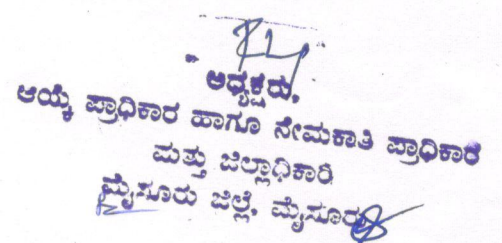 ಅಧ್ಯಕ್ಷರು,
ಆಯ್ಕೆ ಪ್ರಾಧಿಕಾರ ಹಾಗೂ ನೇಮಕಾತಿ ಪ್ರಾಧಿಕಾರ
ಮತ್ತು ಜಿಲ್ಲಾಧಿಕಾರಿ
ಮೈಸೂರು ಜಿಲ್ಲೆ, ಮೈಸೂರು